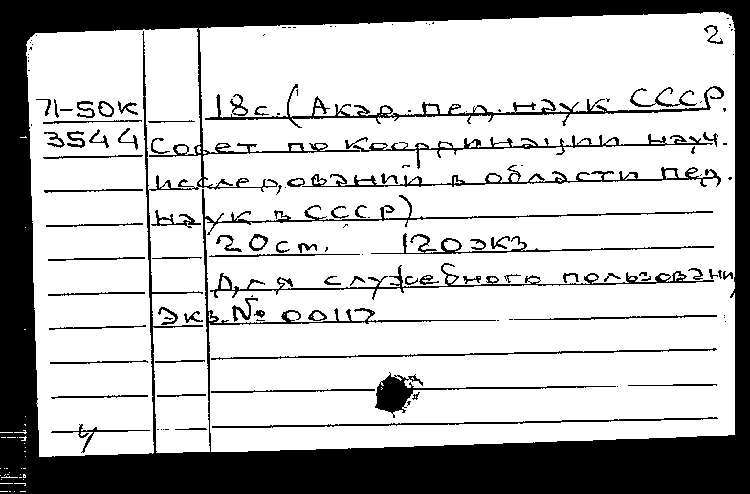 2
71-50к 18с. (Акад. пед. наук СССР.
3544 Совет по координации науч.
исследований в области пед.
наук в СССР).
20ст. 120экз.
Для служебного пользовани
Экз. № 00117